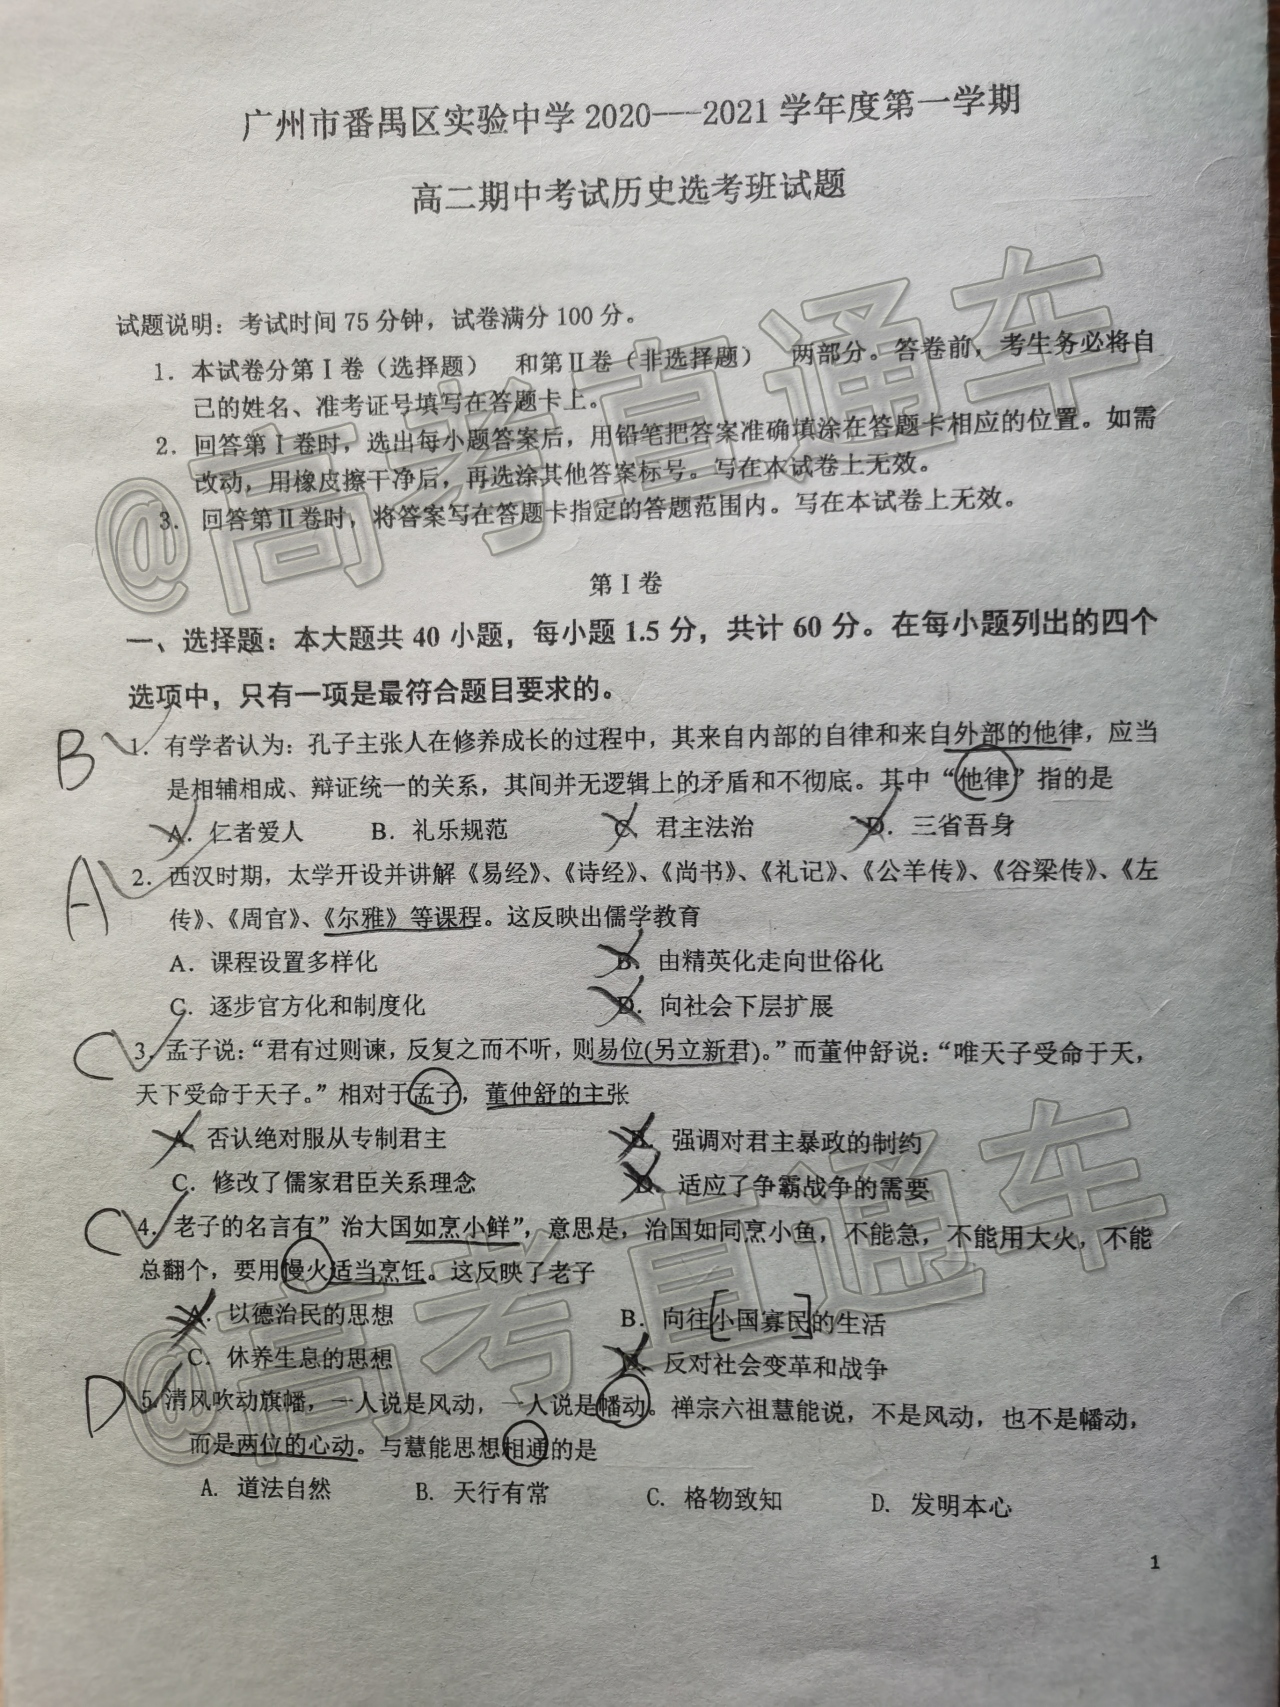 广州市番禺区实验中学 2020---2021 学年度第一学期
高二期中考试历史选考班试题
试题说明：考试时间 75 分钟，试卷满分 100 分。
1．本试卷分第Ⅰ卷（选择题） 和第Ⅱ卷（非选择题） 两部分。答卷前，考生务必将自
己的姓名、准考证号填写在答题卡上。
2．回答第Ⅰ卷时，选出每小题答案后，用铅笔把答案准确填涂在答题卡相应的位置。如需
改动，用橡皮擦干净后，再选涂其他答案标号。写在本试卷上无效。
3．回答第Ⅱ卷时，将答案写在答题卡指定的答题范围内。写在本试卷上无效。
@高考直通车
第Ⅰ卷
一、选择题：本大题共 40 小题，每小题 1.5 分，共计 60 分。在每小题列出的四个
选项中，只有一项是最符合题目要求的。
B 1．有学者认为：孔子主张人在修养成长的过程中，其来自内部的自律和来自外部的他律，应当
是相辅相成、辩证统一的关系，其间并无逻辑上的矛盾和不彻底。其中“他律”指的是
A．仁者爱人 B．礼乐规范 C．君主法治 D．三省吾身
A 2．西汉时期，太学开设并讲解《易经》、《诗经》、《尚书》、《礼记》、《公羊传》、《谷梁传》、《左
传》、《周官》、《尔雅》等课程。这反映出儒学教育
A．课程设置多样化 B．由精英化走向世俗化
C．逐步官方化和制度化 D．向社会下层扩展
C 3．孟子说：“君有过则谏，反复之而不听，则易位(另立新君)。”而董仲舒说：“唯天子受命于天，
天下受命于天子。”相对于孟子，董仲舒的主张
A．否认绝对服从专制君主 B．强调对君主暴政的制约
C．修改了儒家君臣关系理念 D．适应了争霸战争的需要
C 4．老子的名言有”治大国如烹小鲜”，意思是，治国如同烹小鱼，不能急，不能用大火，不能
总翻个，要用慢火适当烹饪。这反映了老子
A．以德治民的思想 B．向往[小国寡民]的生活
C．休养生息的思想 D．反对社会变革和战争
@高考直通车
D 5.清风吹动旗幡，一人说是风动，一人说是幡动。禅宗六祖慧能说，不是风动，也不是幡动，
而是两位的心动。与慧能思想相通的是
A. 道法自然 B. 天行有常 C. 格物致知 D. 发明本心
1